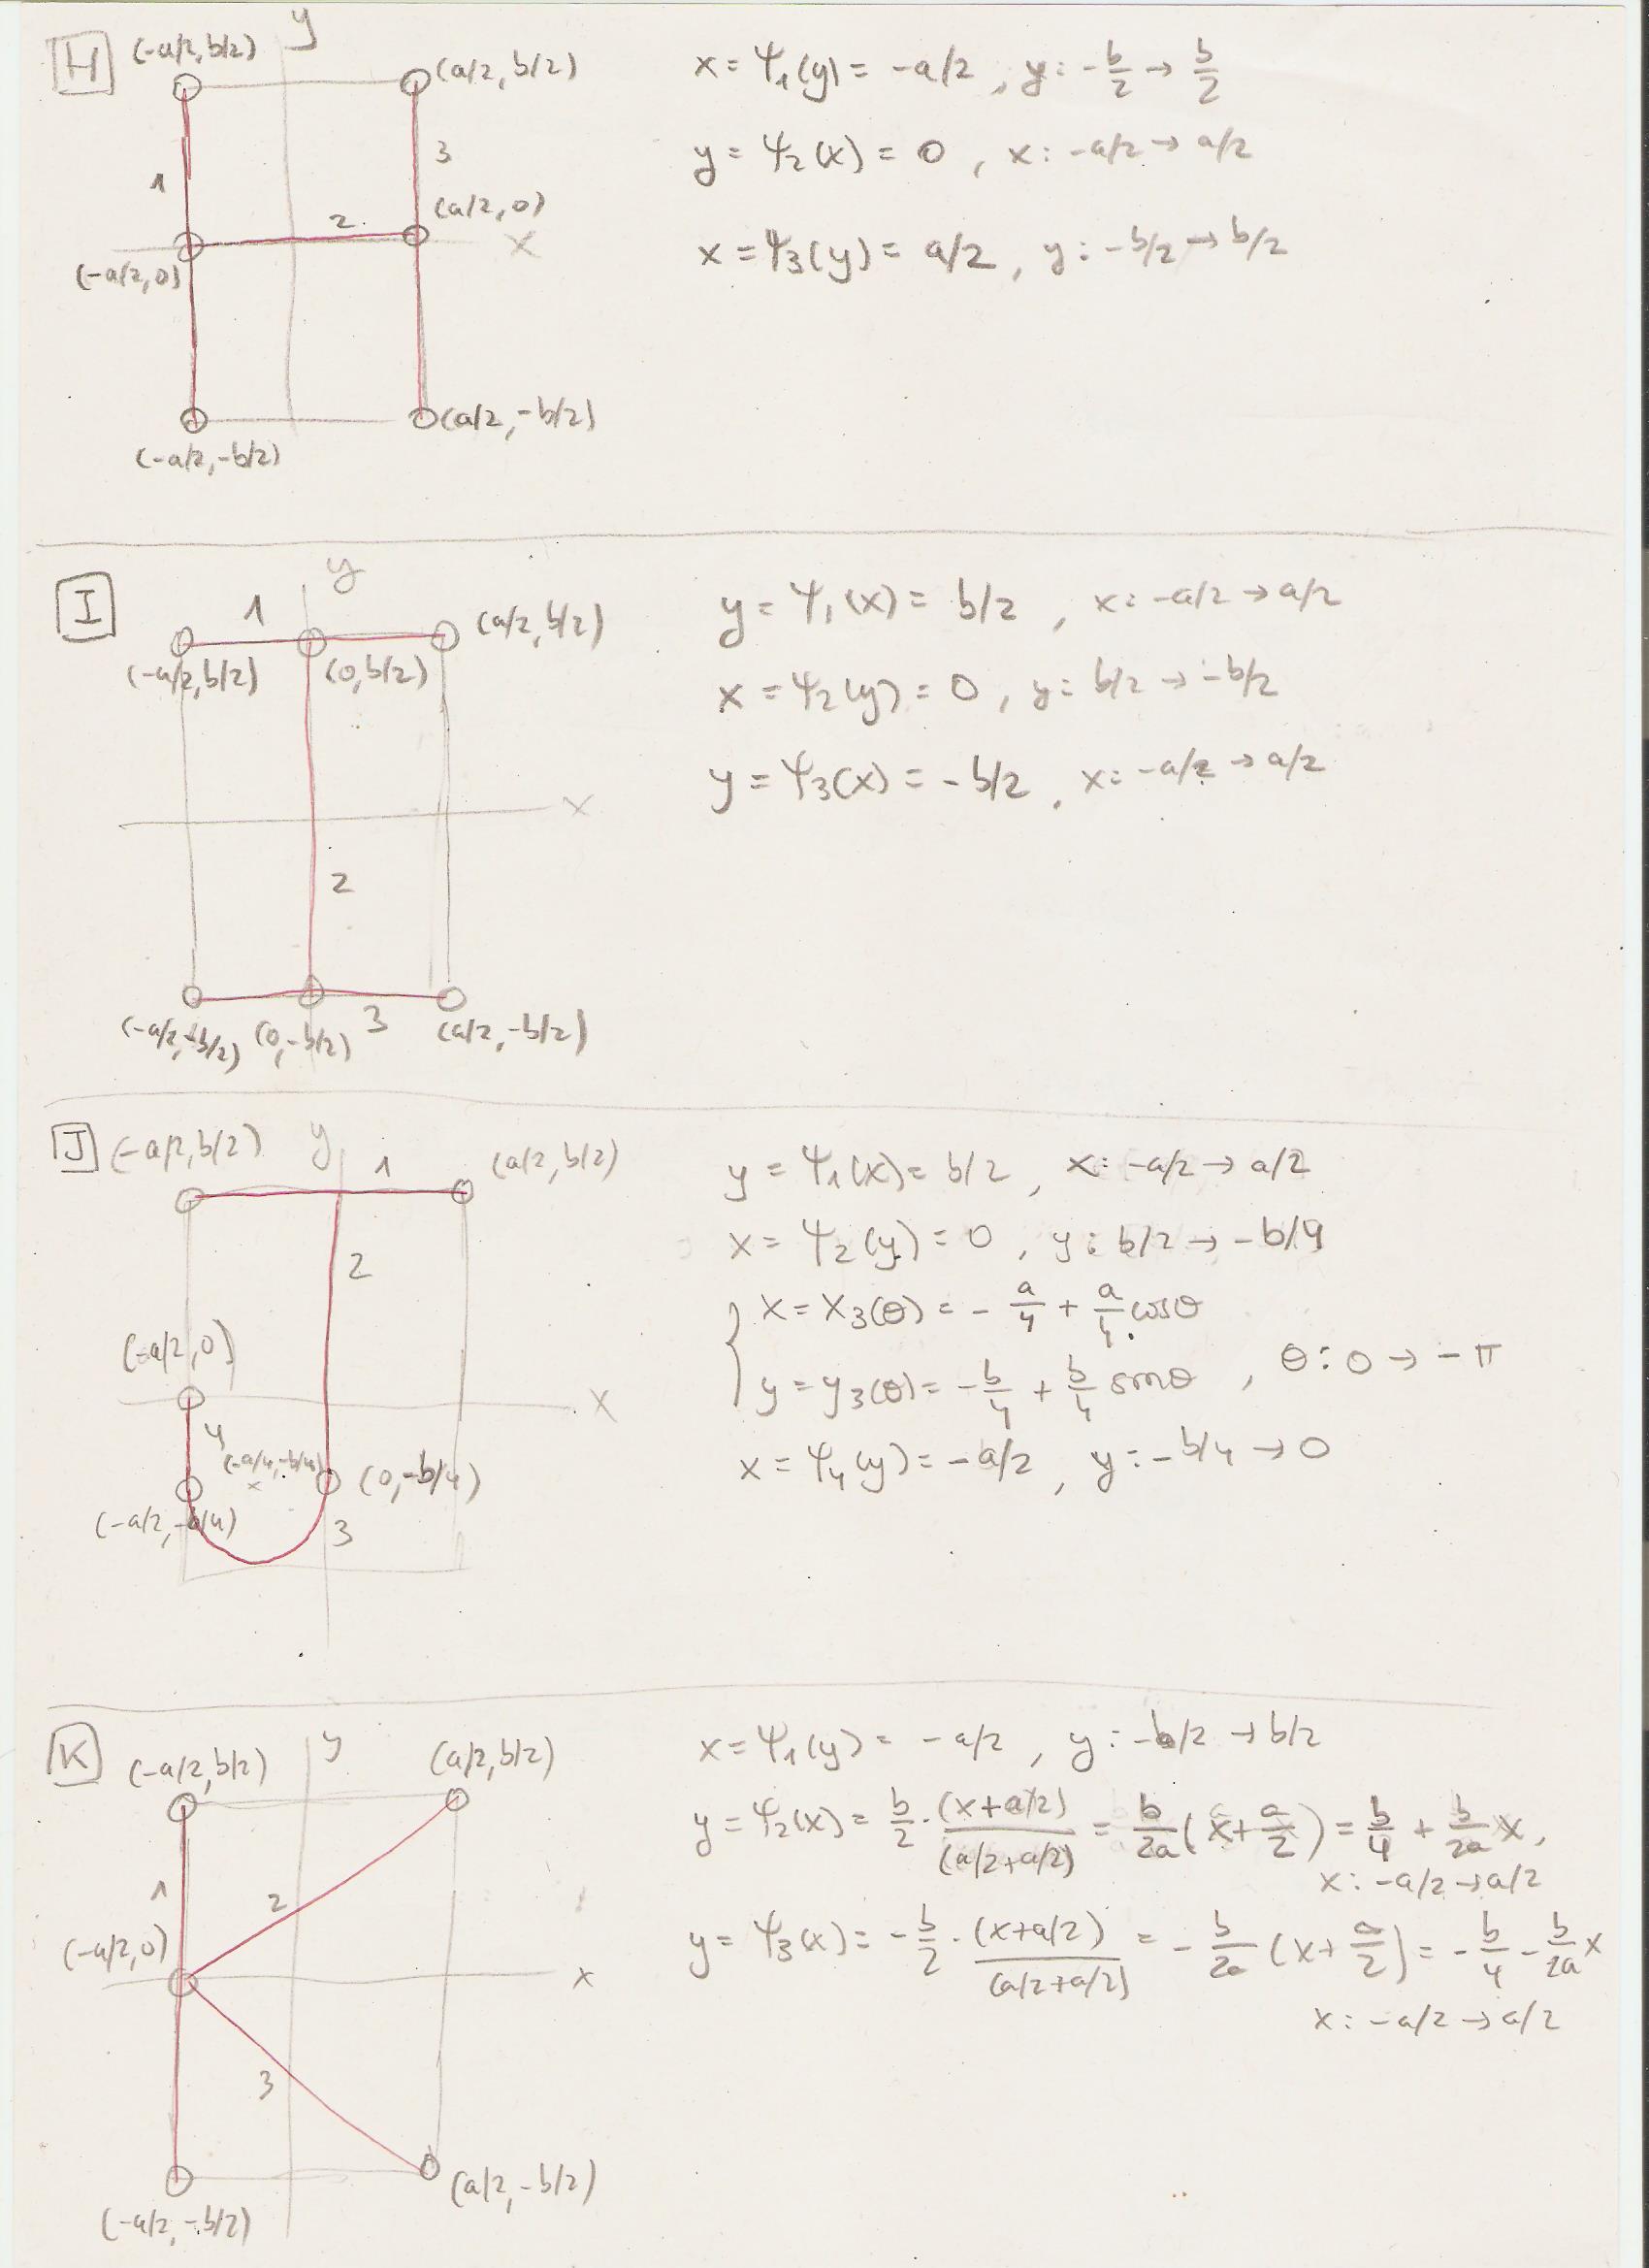 H
(-a/2, b/2) y (a/2, b/2)
1 3
2 (a/2, 0)
(-a/2, 0) x
(-a/2, -b/2) (a/2, -b/2)
x = Ψ₁(y) = -a/2 , y: -b/2 → b/2
y = Ψ₂(x) = 0 , x: -a/2 → a/2
x = Ψ₃(y) = a/2 , y: -b/2 → b/2
I
y
1 (a/2, b/2)
(-a/2, b/2) (0, b/2)
x
2
(-a/2, -b/2) (0, -b/2) 3 (a/2, -b/2)
y = Ψ₁(x) = b/2 , x: -a/2 → a/2
x = Ψ₂(y) = 0 , y: b/2 → -b/2
y = Ψ₃(x) = -b/2 , x: -a/2 → a/2
J (-a/2, b/2) y 1 (a/2, b/2)
2
(-a/2, 0)
x
4
(-a/4, -b/4) (0, -b/4)
x
(-a/2, -b/4) 3
y = Ψ₁(x) = b/2 , x: -a/2 → a/2
x = Ψ₂(y) = 0 , y: b/2 → -b/4
x = x₃(θ) = -a/4 + a/4 cosθ
y = y₃(θ) = -b/4 + b/4 sinθ , θ: 0 → -π
x = Ψ₄(y) = -a/2 , y: -b/4 → 0
K
(-a/2, b/2) y (a/2, b/2)
1
2
(-a/2, 0)
x
3
(a/2, -b/2)
(-a/2, -b/2)
x = Ψ₁(y) = -a/2 , y: -b/2 → b/2
y = Ψ₂(x) = b/2 · (x+a/2)/(a/2+a/2) = b/2a (x + a/2) = b/4 + b/2a x ,
x: -a/2 → a/2
y = Ψ₃(x) = -b/2 · (x+a/2)/(a/2+a/2) = -b/2a (x + a/2) = -b/4 - b/2a x
x: -a/2 → a/2